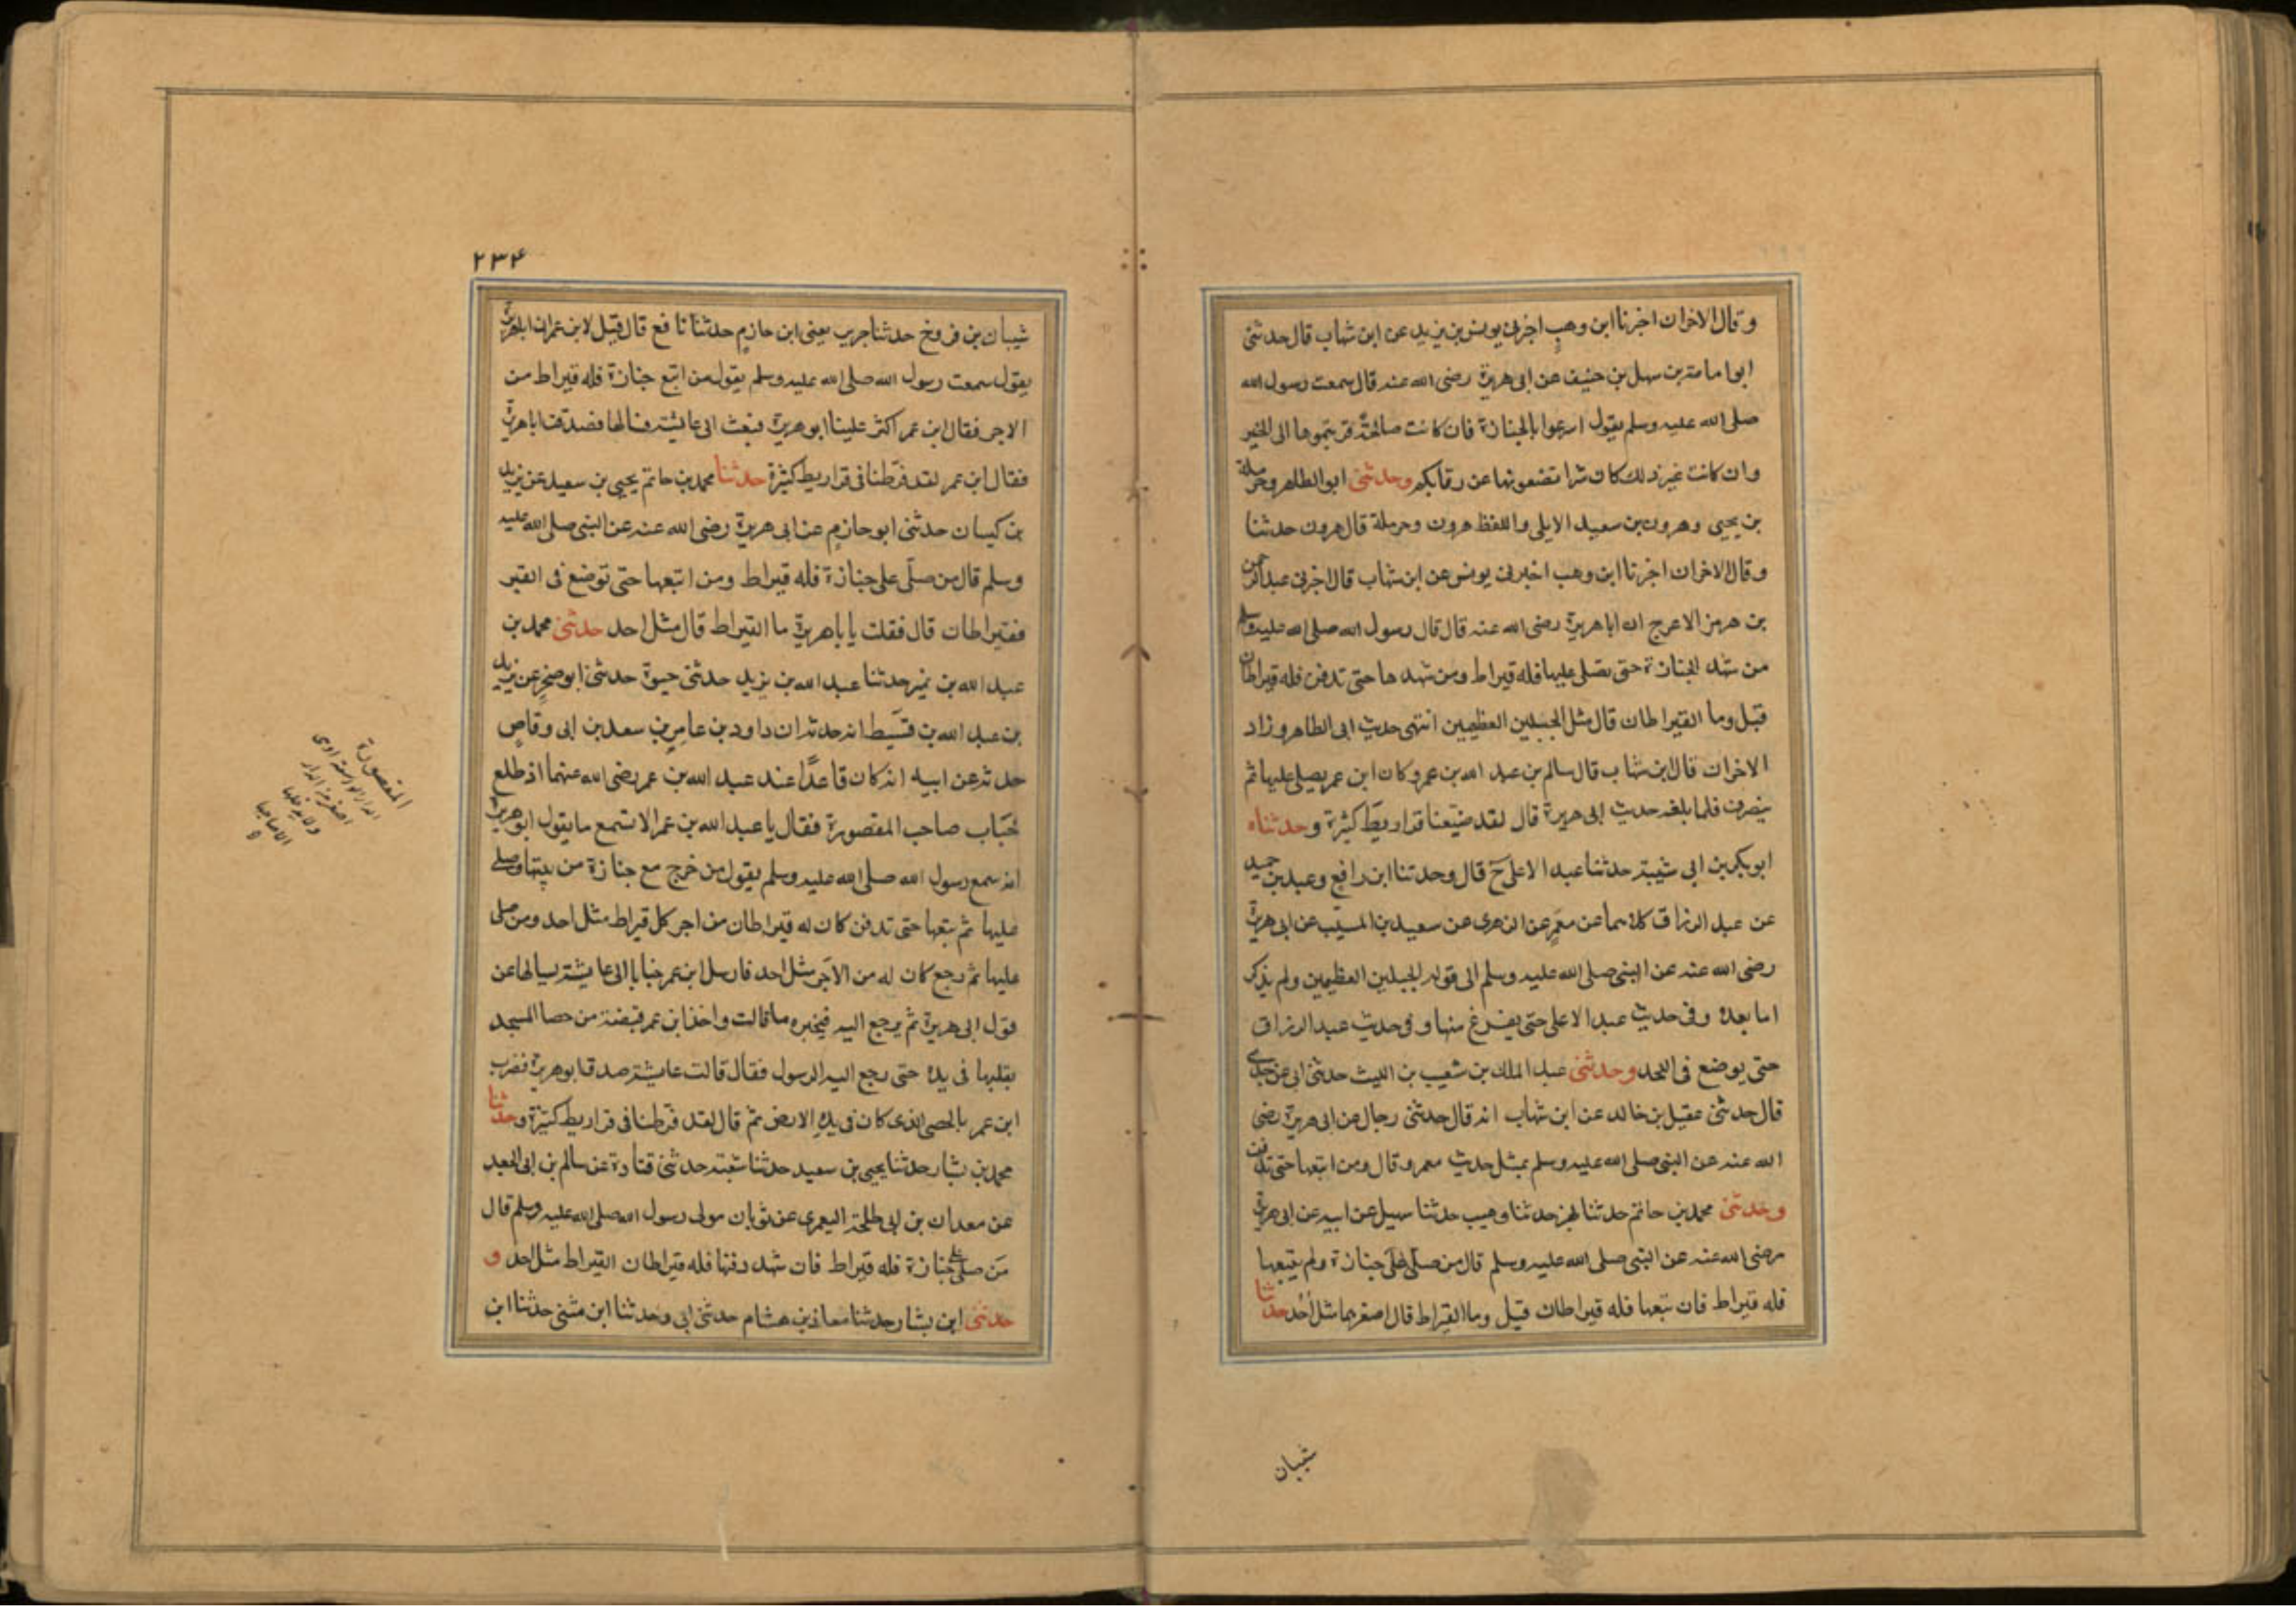 وقال الاخران اخبرنا ابن وهب اخبرنى يونس بن يزيد عن ابن شهاب قال حدثنى
ابو امامة بن سهل بن حنيف عن ابى هريرة رضى الله عنه قال سمعت رسول الله
صلى الله عليه وسلم يقول اسرعوا بالجنازة فان كانت صالحة قربتموها الى الخير
وان كانت غير ذلك كان شرا تضعونها عن رقابكم وحدثنى ابو الطاهر وحرملة
بن يحيى وهرون بن سعيد الايلى واللفظ لهرون وحرملة قال هرون حدثنا
وقال الاخران اخبرنا ابن وهب اخبرنى يونس عن ابن شهاب قال اخبرنى عبد الرحمن
بن هرمز الاعرج ان ابا هريرة رضى الله عنه قال قال رسول الله صلى الله عليه وسلم
من شهد الجنازة حتى يصلى عليها فله قيراط ومن شهدها حتى تدفن فله قيراطان
قيل وما القيراطان قال مثل الجبلين العظيمين انتهى حديث ابى الطاهر وزاد
الاخران قال ابن شهاب قال سالم بن عبد الله بن عمر وكان ابن عمر يصلى عليها ثم
ينصرف فلما بلغه حديث ابى هريرة قال لقد ضيّعنا قراريطَ كثيرة وحدثناه
ابو بكر بن ابى شيبة حدثنا عبد الاعلى ح قال وحدثنا ابن رافع وعبد بن حميد
عن عبد الرزاق كلاهما عن معمرٍ عن الزهرى عن سعيد بن المسيب عن ابى هريرة
رضى الله عنه عن النبى صلى الله عليه وسلم الى قوله الجبلين العظيمين ولم يذكر
اما بعده وفى حديث عبد الاعلى حتى يفرغ منها وفى حديث عبد الرزاق
حتى يوضع فى اللحد وحدثنى عبد الملك بن شعيب بن الليث حدثنى ابى عن جدى
قال حدثنى عقيل بن خالد عن ابن شهاب انه قال حدثنى رجال عن ابى هريرة رضى
الله عنه عن النبى صلى الله عليه وسلم بمثل حديث معمر وقال ومن اتبعها حتى تدفن
وحدثنى محمد بن حاتم حدثنا بهز حدثنا وهيب حدثنا سهيل عن ابيه عن ابى هريرة
رضى الله عنه عن النبى صلى الله عليه وسلم قال من صلّى على جنازة ولم يتبعها
فله قيراط فان تبعها فله قيراطان قيل وما القيراط قال اصغرهما مثل اُحُد حدثنا
شيبان
٢٣٤
شيبان بن فروخ حدثنا جرير يعنى ابن حازم حدثنا نافع قال قيل لابن عمر ان ابا هريرة
يقول سمعت رسول الله صلى الله عليه وسلم يقول من اتبع جنازة فله قيراط من
الاجر فقال ابن عمر اكثر علينا ابو هريرة فبعث الى عائشة فسألها فصدقت ابا هريرة
فقال ابن عمر لقد فرّطنا فى قراريط كثيرة حدثنا محمد بن حاتم يحيى بن سعيد عن يزيد
بن كيسان حدثنى ابو حازم عن ابى هريرة رضى الله عنه عن النبى صلى الله عليه
وسلم قال من صلّى على جنازة فله قيراط ومن اتبعها حتى توضع فى القبر
فقيراطان قال فقلت يا با هريرة ما القيراط قال مثل احد حدثنى محمد بن
عبد الله بن نمير حدثنا عبد الله بن يزيد حدثنى حيوة حدثنى ابو صخرٍ عن يزيد
بن عبد الله بن قسَيط انه حدثه ان داود بن عامرِ بن سعد بن ابى وقاصٍ
حدثه عن ابيه انه كان قاعدًا عند عبد الله بن عمر رضى الله عنهما اذ طلع
خبّاب صاحب المقصورة فقال يا عبد الله بن عمر الا تسمع ما يقول ابو هريرة
انه سمع رسول الله صلى الله عليه وسلم يقول من خرج مع جنازة من بيتها وصلى
عليها ثم تبعها حتى تدفن كان له قيراطان من اجر كل قيراط مثل احد ومن صلى
عليها ثم رجع كان له من الاجر مثل احد فارسل ابن عمر خبابا الى عايشة يسالها عن
قول ابى هريرة ثم يرجع اليه فيخبره ما قالت واخذ ابن عمر قبضة من حصا المسجد
يقلبها فى يده حتى رجع اليه الرسول فقال قالت عايشة صدق ابو هريرة فضرب
ابن عمر بالحصى الذى كان فى يدهِ الارض ثم قال لقد فرّطنا فى قراريط كثيرة وحدثنا
محمد بن بشار حدثنا يحيى بن سعيد حدثنا شعبة حدثنى قتادة عن سالم بن ابى الجعد
عن معدان بن ابى طلحة اليعمرى عن ثوبان مولى رسول الله صلى الله عليه وسلم قال
مَن صلى على جنازة فله قيراط فان شهد دفنها فله قيراطان القيراط مثل احد و
حدثنى ابن بشار حدثنا معاذ بن هشام حدثنى ابى وحدثنا ابن مثنى حدثنا ابن
المقصورة
الدار الواسعة او هى
اصغر من الدار
ولا يدخلها
الا صاحبها